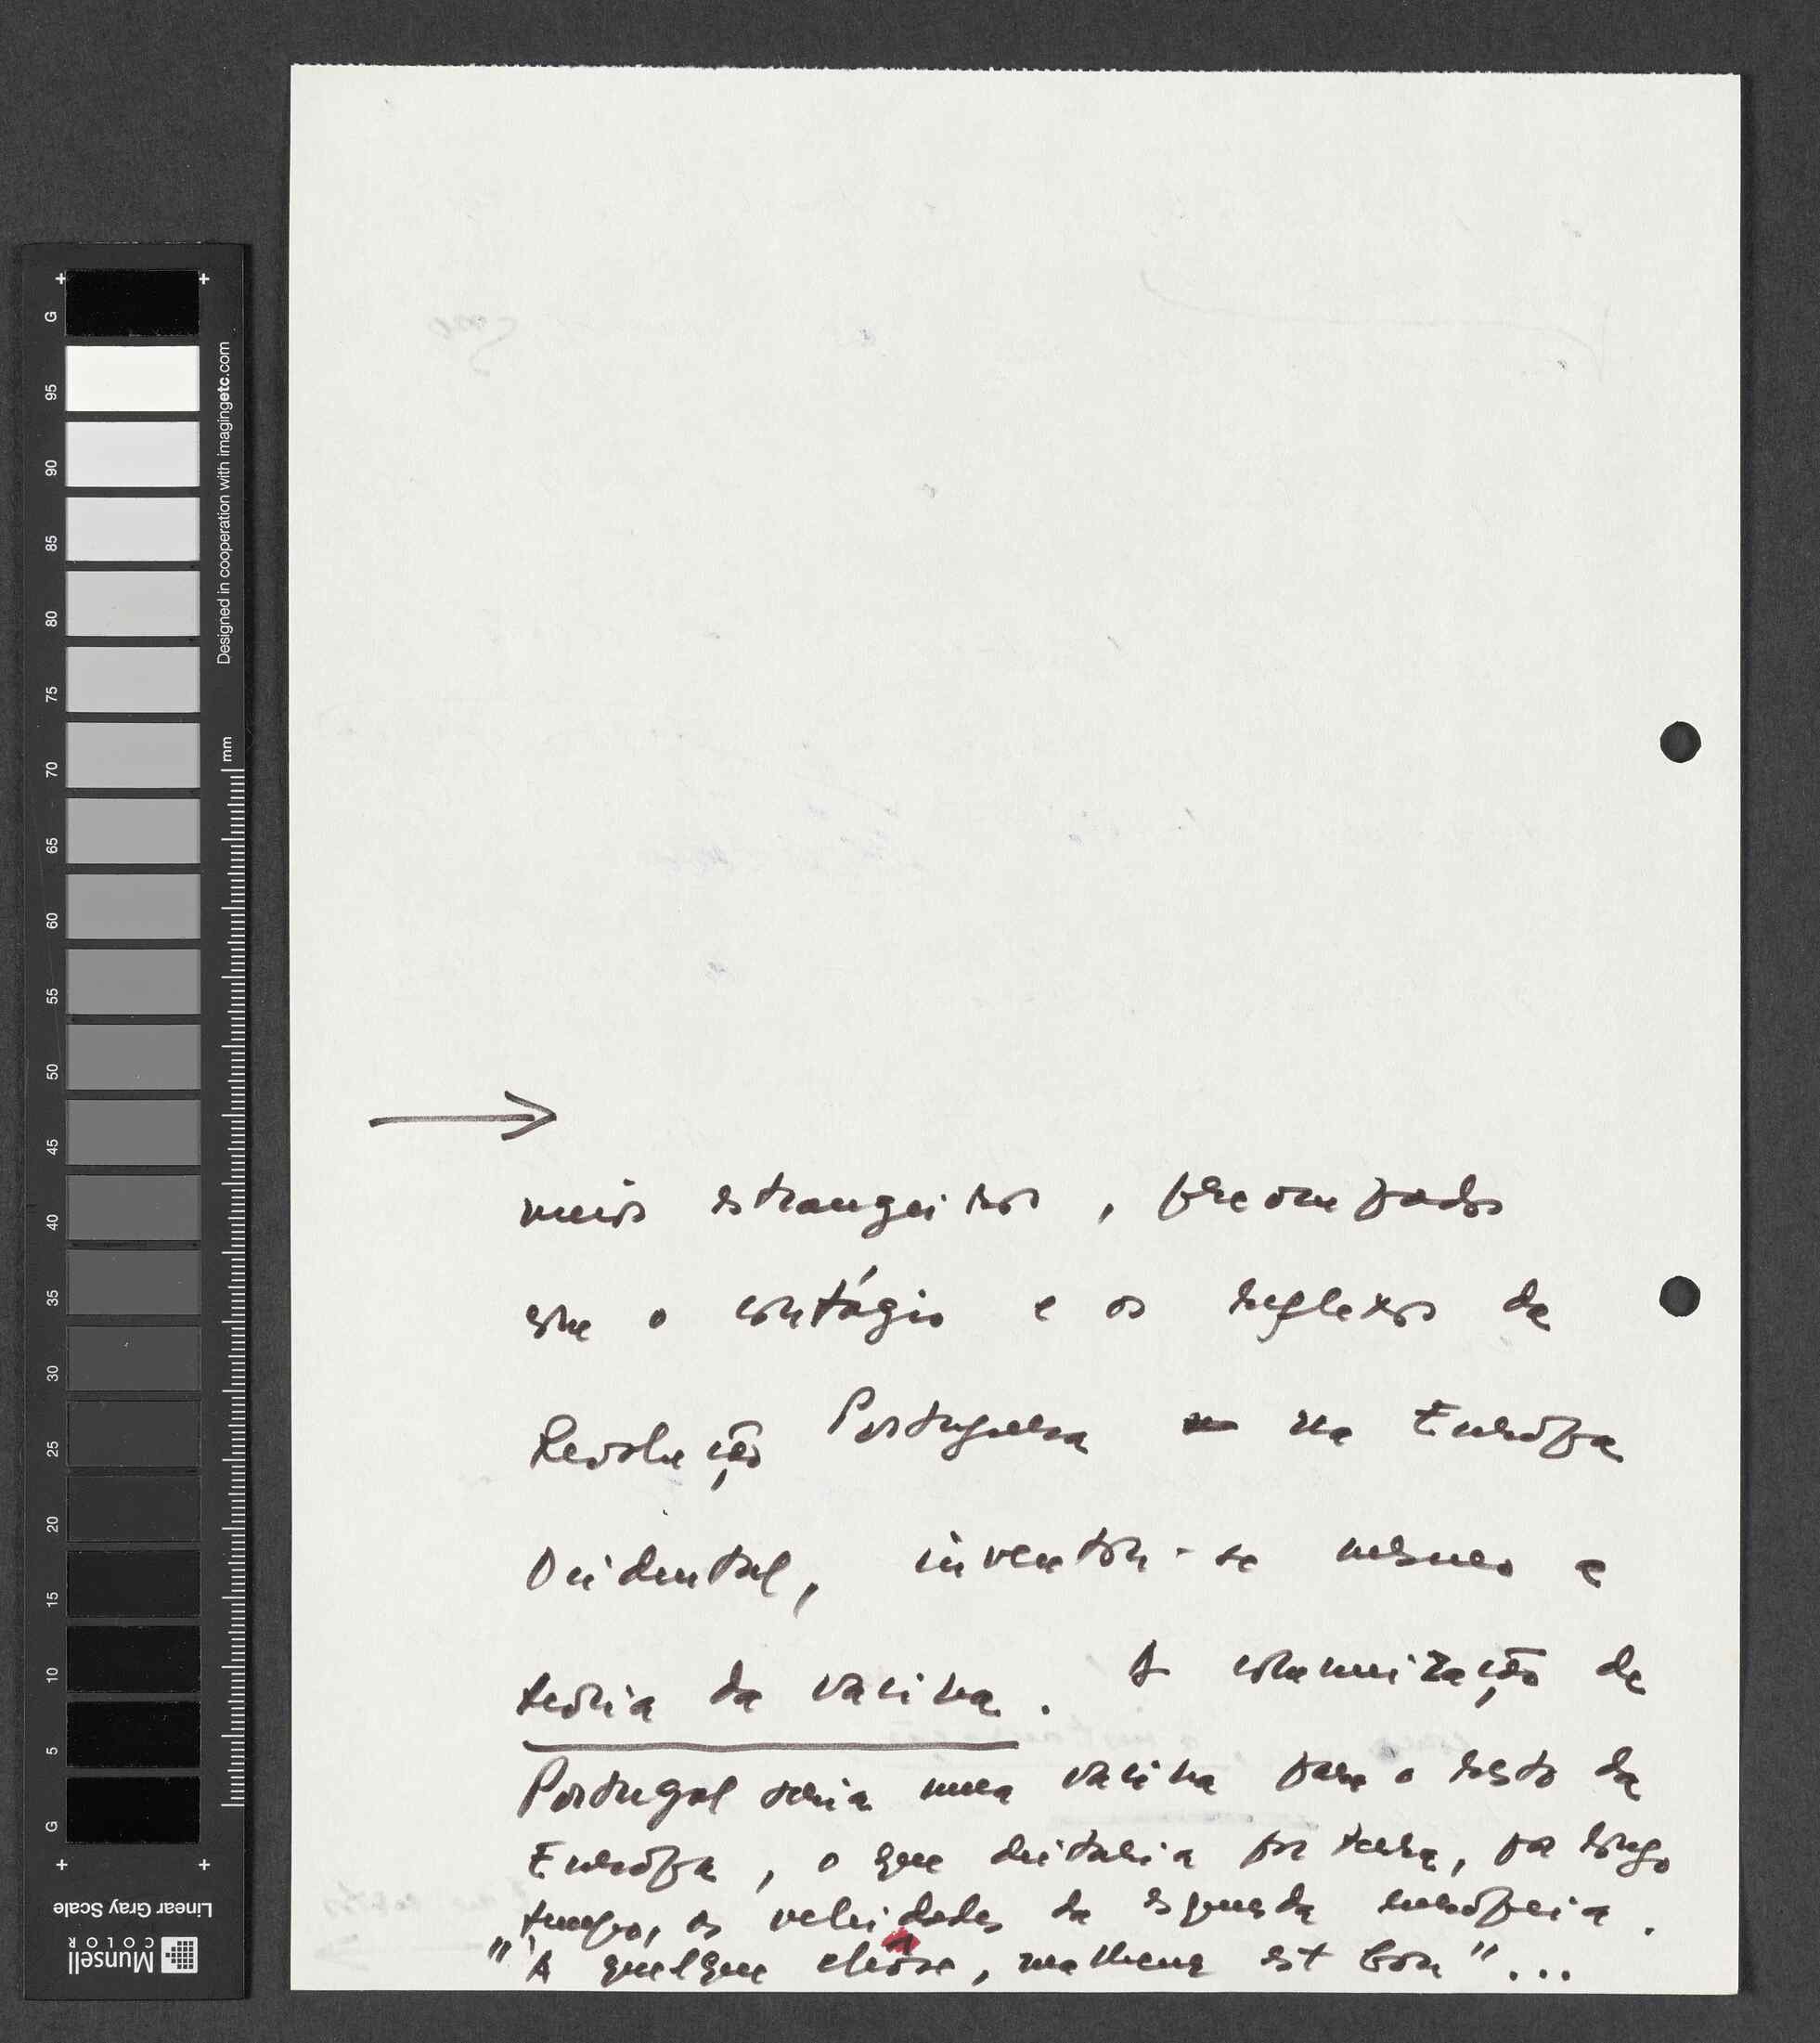 G
95
90
85
80
75
70
65
60
55
50
45
40
35
30
25
20
15
10
5
G
Designed in cooperation with imagingetc.com
mm
Linear Gray Scale
Munsell
COLOR
→
meios estrangeiros, preocupados
com o contágio e os reflexos da
Revolução Portuguesa na Europa
Ocidental, inventou-se mesmo a
teoria da vacina. A comunização de
Portugal seria uma vacina para o resto da
Europa, o que deitaria por terra, por longo
tempo, as veleidades da esquerda europeia.
"À quelque chose, malheur est bon"...